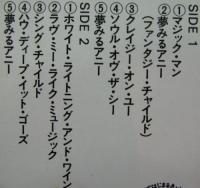 SIDE 1
①マジック・マン
②夢みるアニー
(ファンタジー・チャイルド)
③クレイジー・オン・ユー
④ソウル・オヴ・ザ・シー
⑤夢みるアニー
SIDE 2
①ホワイト・ライトニング・アンド・ワイン
②ラヴ・ミー・ライク・ミュージック
③シング・チャイルド
④ハウ・ディープ・イット・ゴーズ
⑤夢みるアニー